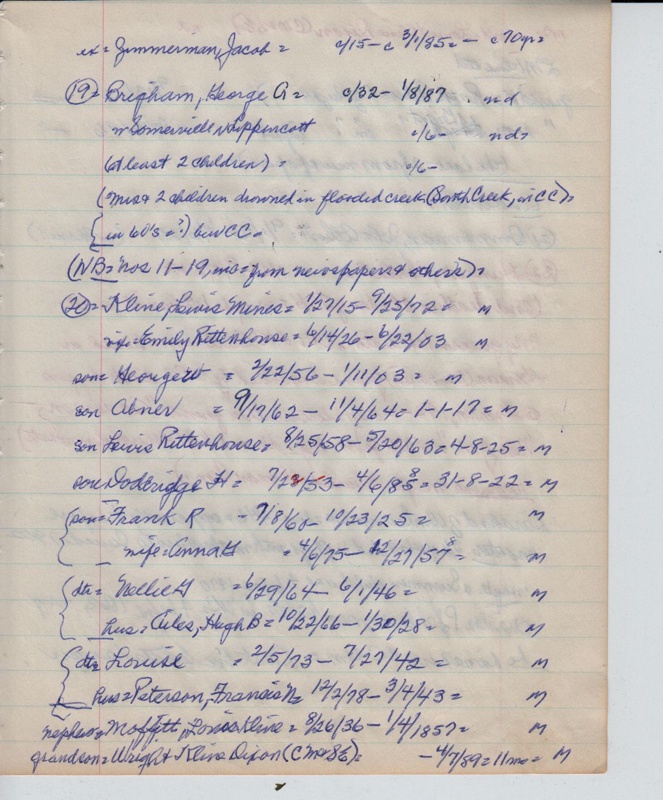 ex = Zimmerman, Jacob = c/15 - c 3/1/85 = - c 70 yrs =
(19) = Brigham, George A = c/32 - 1/8/87 nd
w Somerville Lippincott c/6- nd =
(at least 2 children) = c/6-
(Mrs & 2 children drowned in flooded creek (South Creek, in CC) =
{in 60's = ?) bur CC =
(NB = Nos 11-19, inc = from newspapers & others) =
(20) = Kline, Lewis Mines = 1/27/15 - 9/25/72 = M
wife = Emily Rittenhouse = 6/14/26 - 6/22/03 M
son = George W = 2/22/56 - 1/11/03 = M
son Abner = 9/17/62 - 11/4/64 = 1-1-17 = M
son Lewis Rittenhouse = 8/25/58 - 5/20/63 = 4-8-25 = M
son Dodridge H = 7/23/53 - 4/6/85 = 31-8-22 = M
{son = Frank R - 7/8/60 - 10/23/25 = M
wife = Anna H = 4/6/75 - 12/27/57 = M
{dtr = Nellie H = 6/29/64 - 6/1/46 = M
hus = Ailes, Hugh B = 10/22/66 - 1/30/28 = M
{dtr = Louise = 2/5/73 - 7/27/42 = M
hus = Peterson, Francis N = 12/2/78 - 3/4/43 = M
nephew = Moffett, Kline = 8/26/36 - 1/4/1857 = M
grandson = Wright Kline Dixon (C M & SE) = - 4/7/89 = 11 mo = M